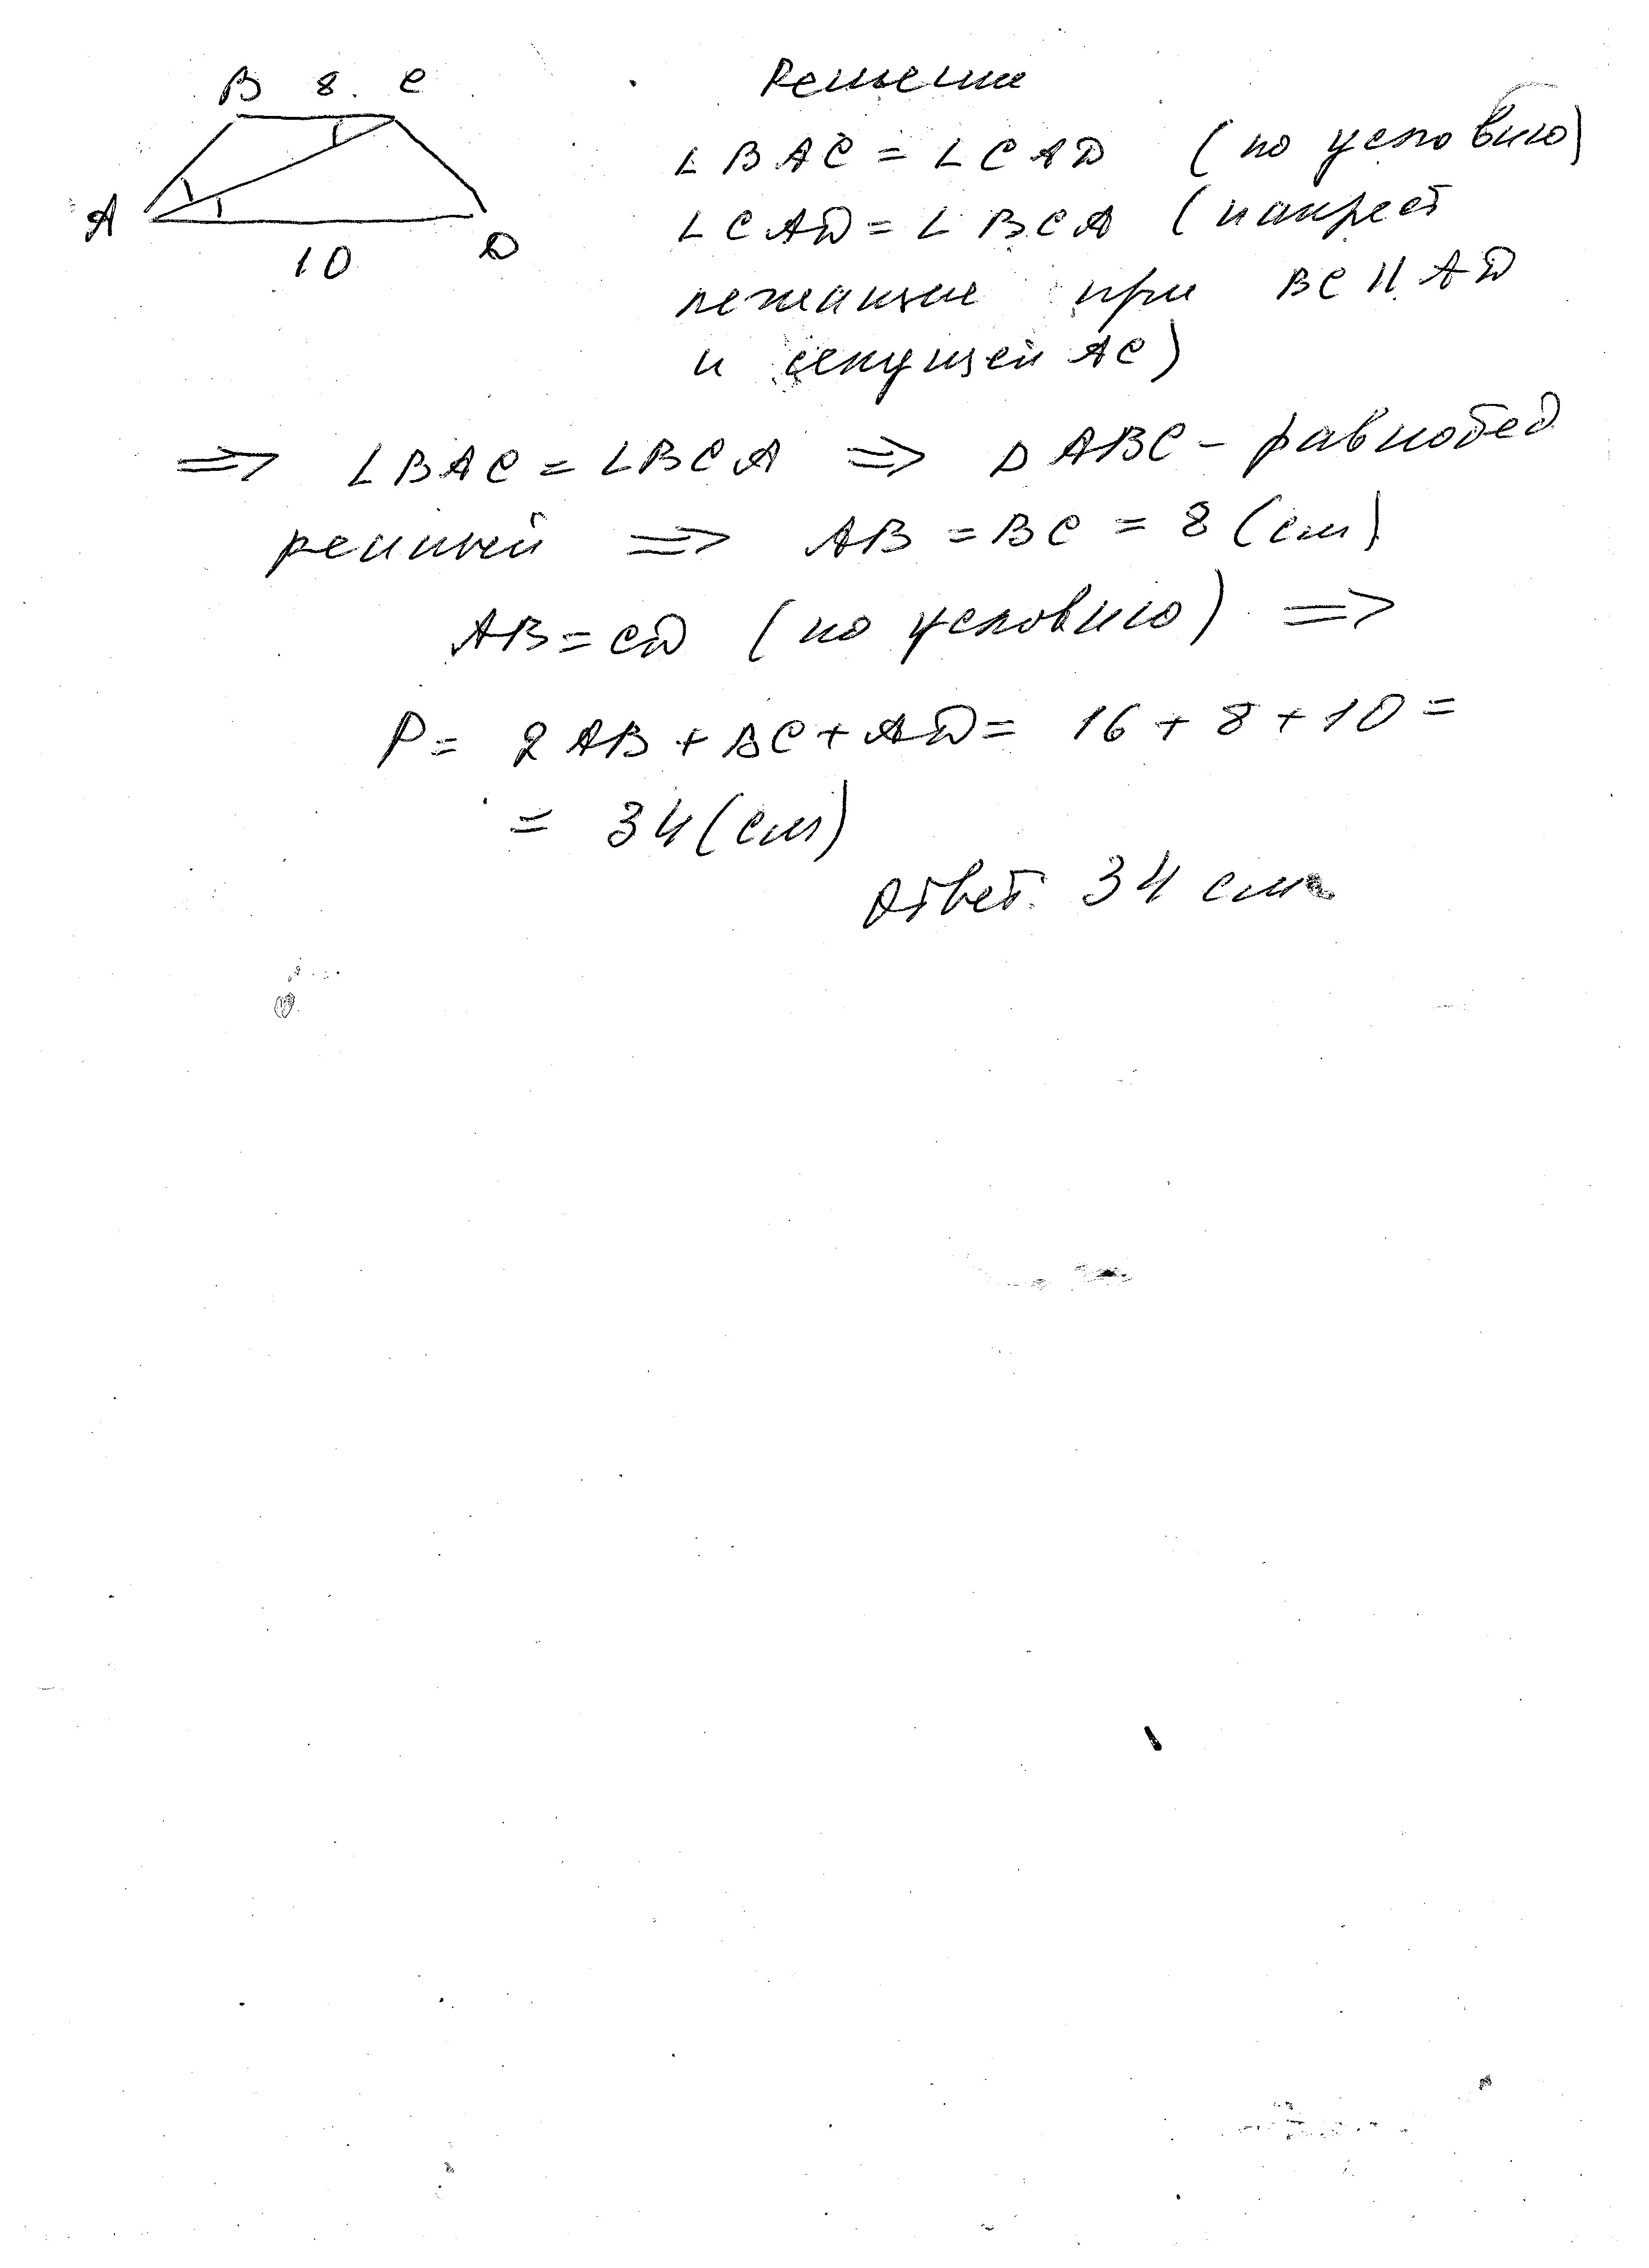 B 8. C
A
10
D
Решение
∠BAC = ∠CAD (по условию)
∠CAD = ∠BCA (накрест
лежащие при BC || AD
и секущей AC)
⇒ ∠BAC = ∠BCA ⇒ △ABC – равнобед
ренный ⇒ AB = BC = 8 (см)
AB = CD (по условию) ⇒
P = 2AB + BC + AD = 16 + 8 + 10 =
= 34 (см)
Ответ. 34 см